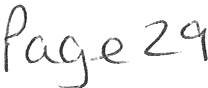 Page 29